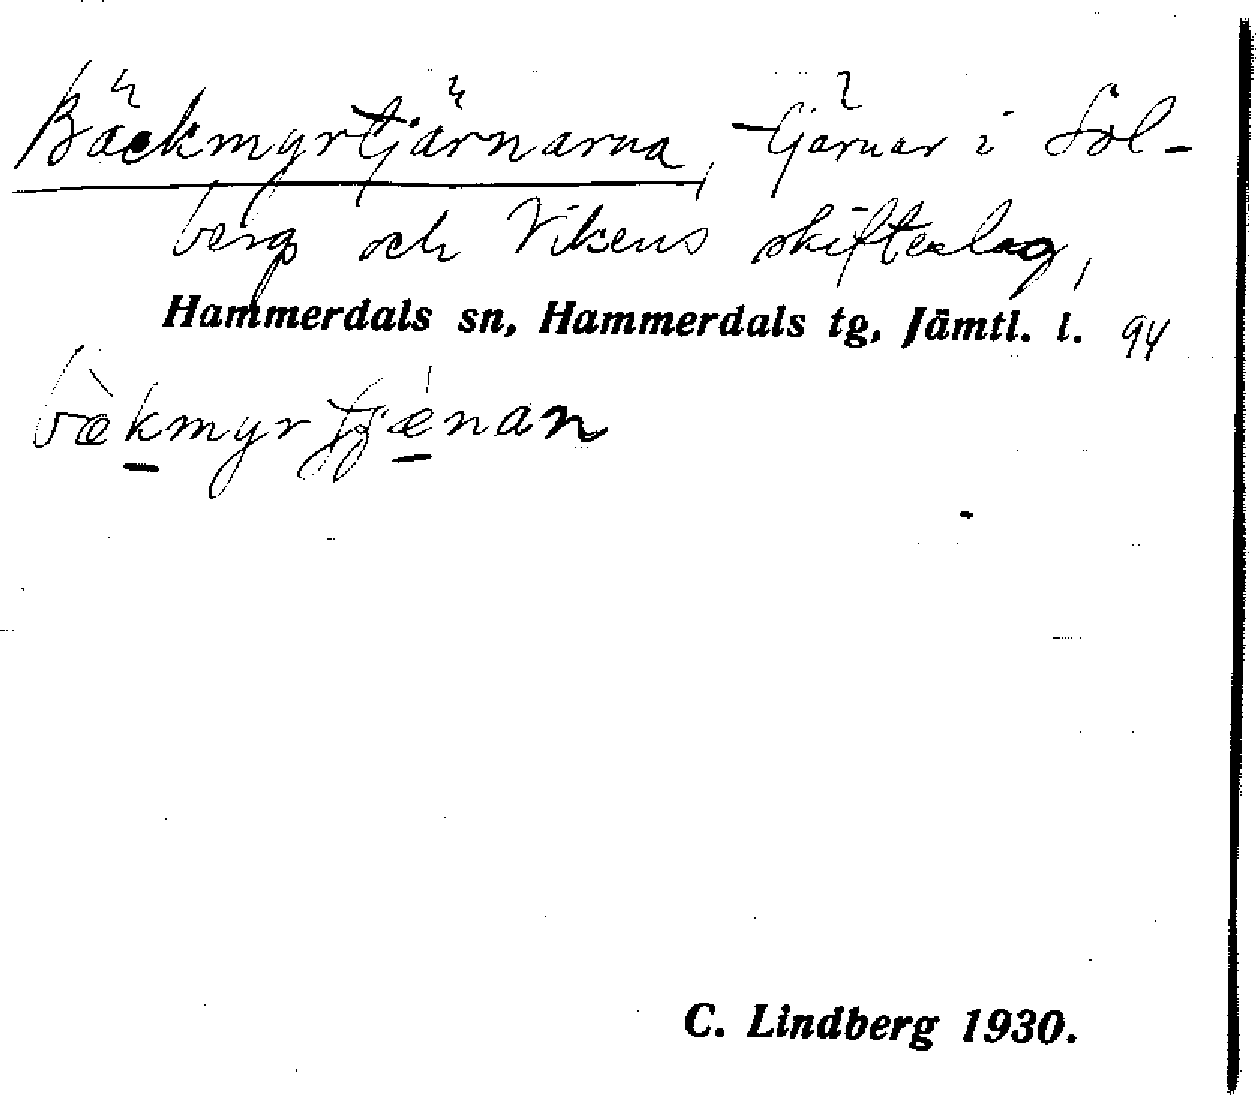 Bäckmyrtjärnarna, tjärnar i Sol-
berg och Vikens skifteslag,
Hammerdals sn, Hammerdals tg, Jämtl. l. 94
bæ̀kmyrtjǽnan
C. Lindberg 1930.